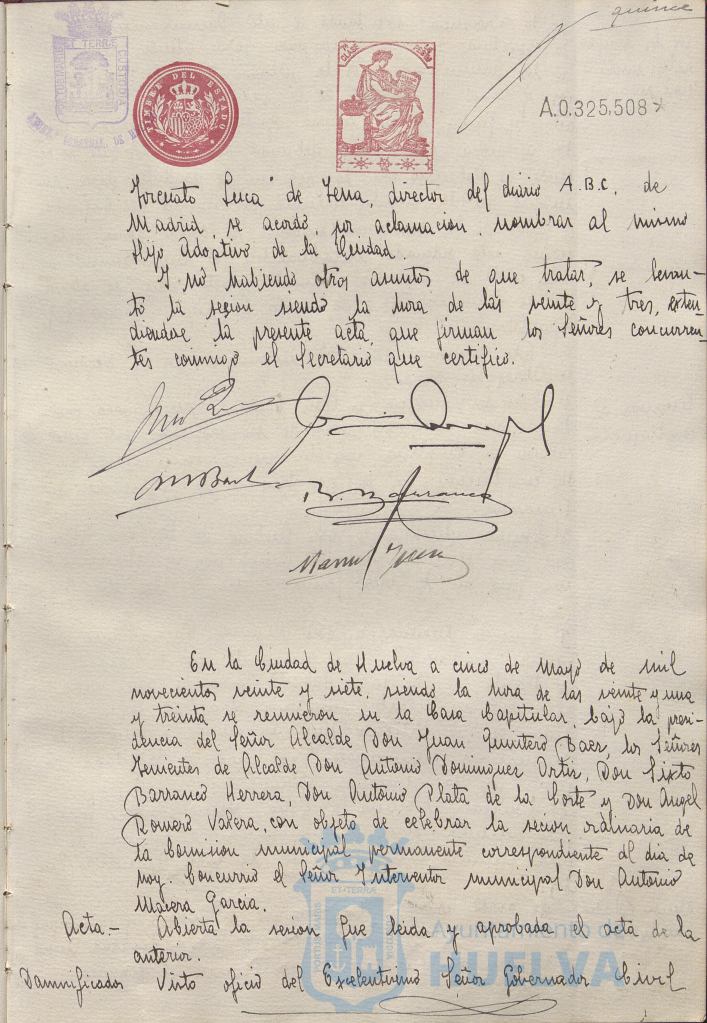 quince
TIMBRE DEL ESTADO
A.0.325,508
Torcuato Luca de Tena, director del diario A.B.C. de
Madrid, se acordo, por aclamacion, nombrar al mismo
Hijo Adoptivo de la Ciudad.
Y no habiendo otros asuntos de que tratar, se levan-
tó la sesion siendo la hora de las veinte y tres, exten-
diendose la presente acta, que firman los Señores concurren-
tes conmigo el Secretario que certifico.
En la Ciudad de Huelva a cinco de Mayo de mil
novecientos veinte y siete, siendo la hora de las veinte y una
y treinta se reunieron en la Casa Capitular, bajo la presi-
dencia del Señor Alcalde Don Juan Quintero Baez, los Señores
Tenientes de Alcalde Don Antonio Dominguez Ortiz, Don Sixto
Barranco Herrera, Don Antonio Plata de la Corte y Don Angel
Romero Valera, con objeto de celebrar la sesion ordinaria de
la Comision municipal permanente correspondiente al dia de
hoy. Concurrio el Señor Interventor municipal Don Antonio
Garcia.
Acta.- Abierta la sesion fue leida y aprobada el acta de la
anterior.
Damnificados Visto oficio del Excelentisimo Señor Gobernador Civil
Ayuntamiento de
HUELVA